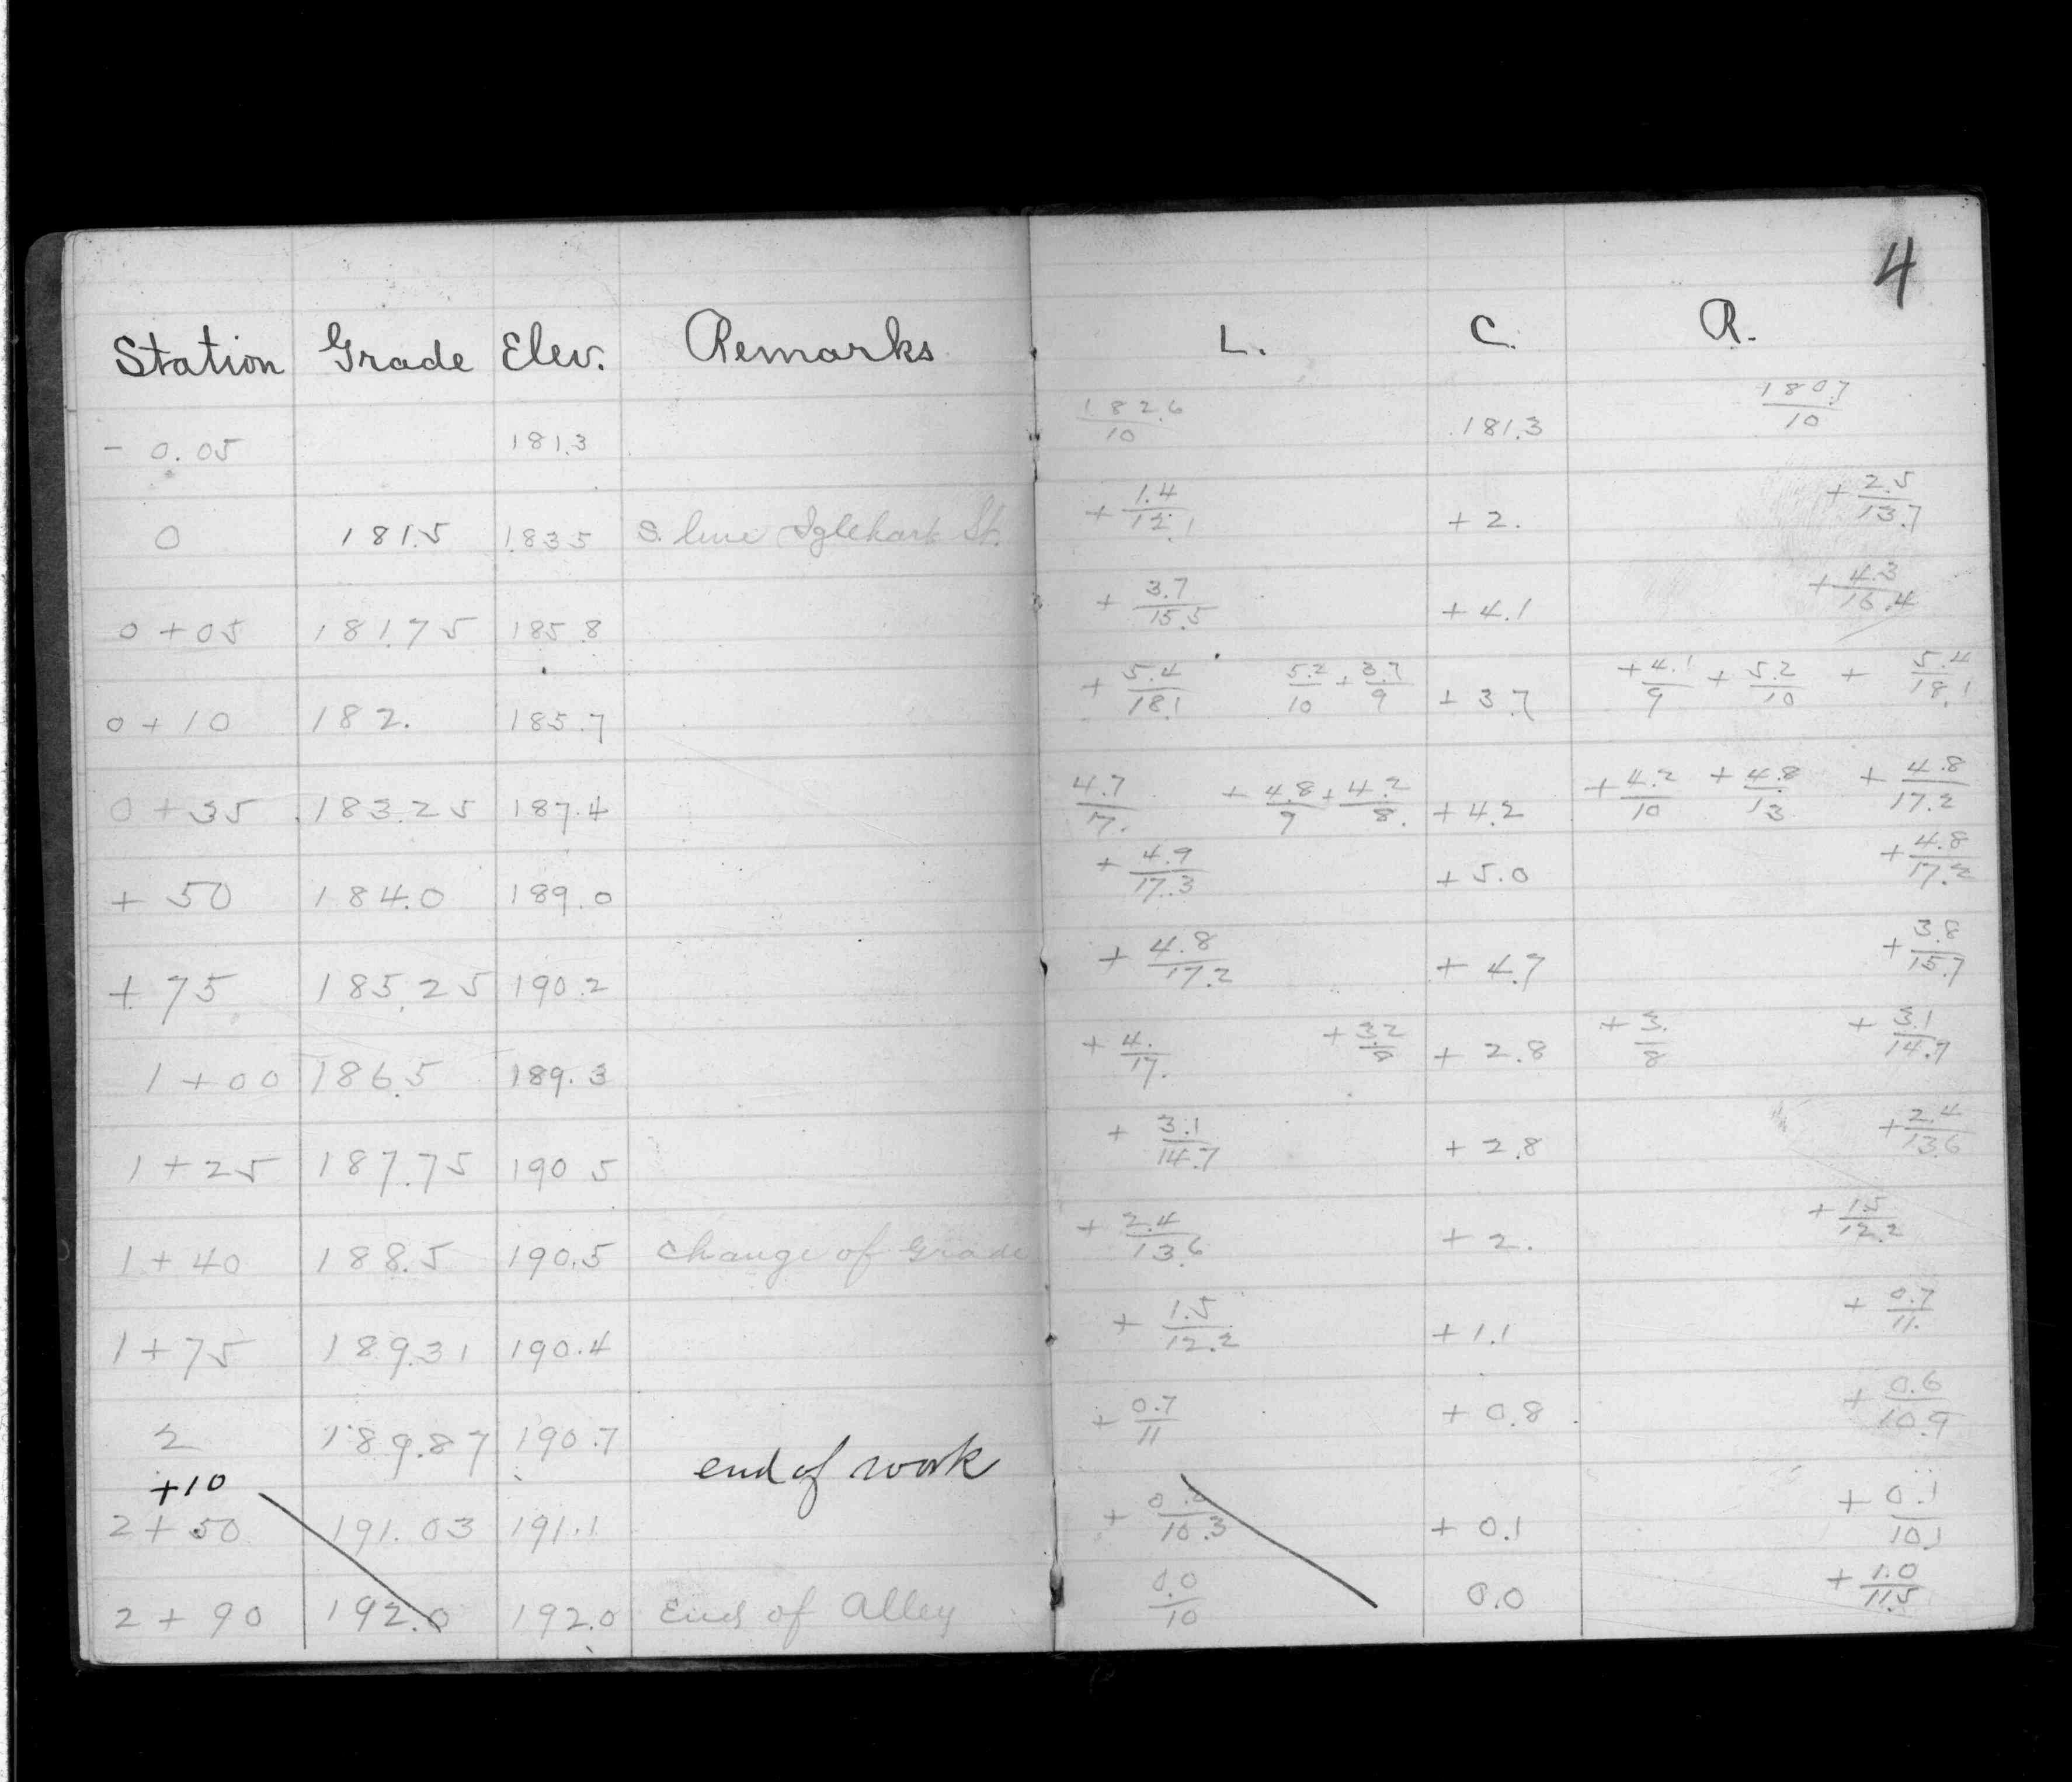 4
Station Grade Elev. Remarks L. C. R.
- 0.05 181.3 182.6/10 181.3 180.7/10
0 181.5 183.5 S. line Iglehart St. + 1.4/12.1 + 2. + 2.5/13.7
0 + 05 181.75 185.8 + 3.7/15.5 + 4.1 + 4.3/16.4
0 + 10 182. 185.7 + 5.4/18.1 5.2/10 + 3.7/9 + 3.7 + 4.1/9 + 5.2/10 + 5.4/18.1
0 + 35 183.25 187.4 4.7/17. + 4.8/9 + 4.2/8. + 4.2 + 4.2/10 + 4.8/13 + 4.8/17.2
+ 50 184.0 189.0 + 4.9/17.3 + 5.0 + 4.8/17.2
+ 75 185.25 190.2 + 4.8/17.2 + 4.7 + 3.8/15.7
1 + 00 186.5 189.3 + 4./17. + 3.2/8 + 2.8 + 3./8 + 3.1/14.7
1 + 25 187.75 190 5 + 3.1/14.7 + 2.8 + 2.4/13.6
1 + 40 188.5 190.5 Change of Grade + 2.4/13.6 + 2. + 1.5/12.2
1 + 75 189.31 190.4 + 1.5/12.2 + 1.1 + 0.7/11.
2 189.87 190.7 + 0.7/11 + 0.8 + 0.6/10.9
+10 end of work
2 + 50 191.03 191.1 + /10.3 + 0.1 + 0.1/10.1
2 + 90 192.0 192.0 End of Alley 0.0/10 0.0 + 1.0/11.5